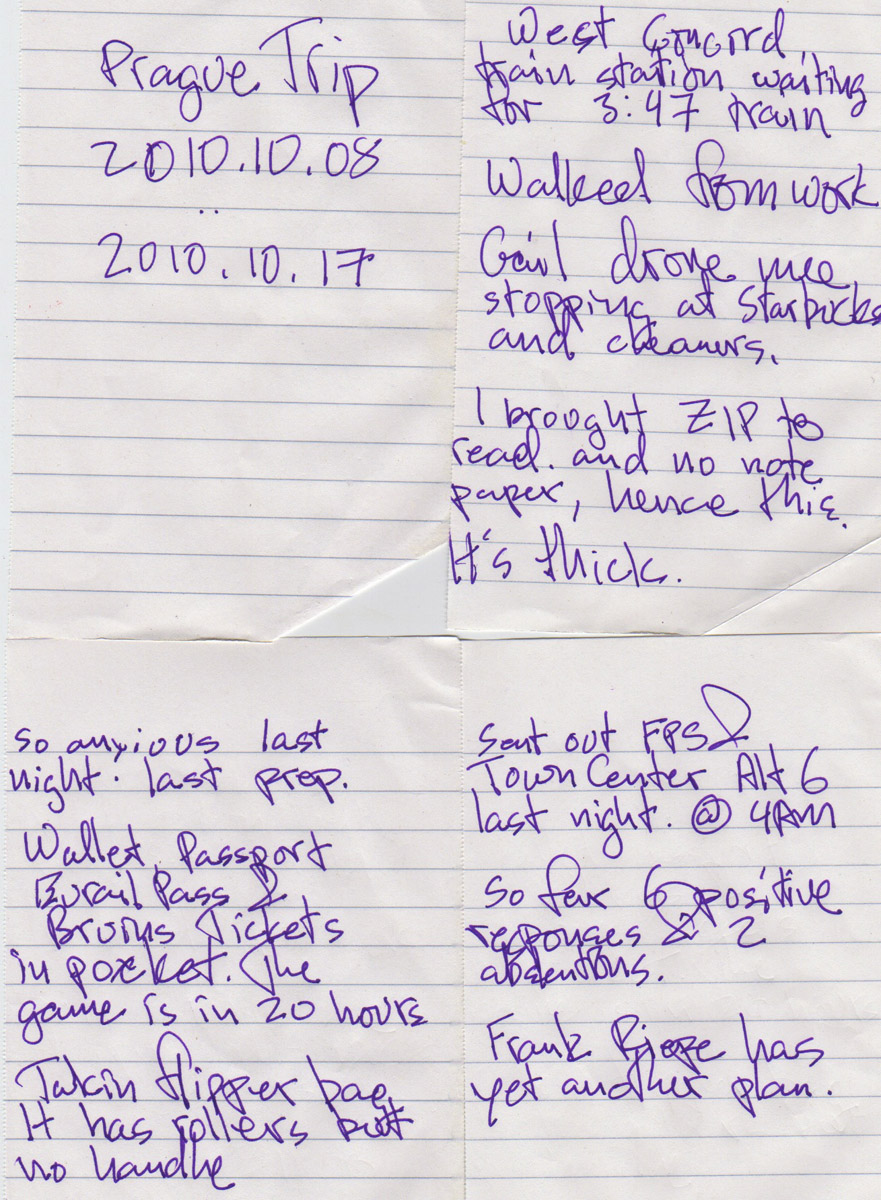 Prague Trip
2010.10.08
..
2010.10.17
West Concord
train station waiting
for 3:47 train
Walked from work
Gail drove me
stopping at Starbucks
and cleaners.
I brought ZIP to
read. and no note
paper, hence this.
It's thick.
So anxious last
night. last prep.
Wallet, Passport
Eurail Pass &
Bruins Tickets
in pocket. The
game is in 20 hours
Takin flipper bag
It has rollers but
no handle
Sent out FPS &
Town Center Alt 6
last night. @ 4AM
So far 6 positive
responses & 2
abstentions.
Frank has
yet another plan.